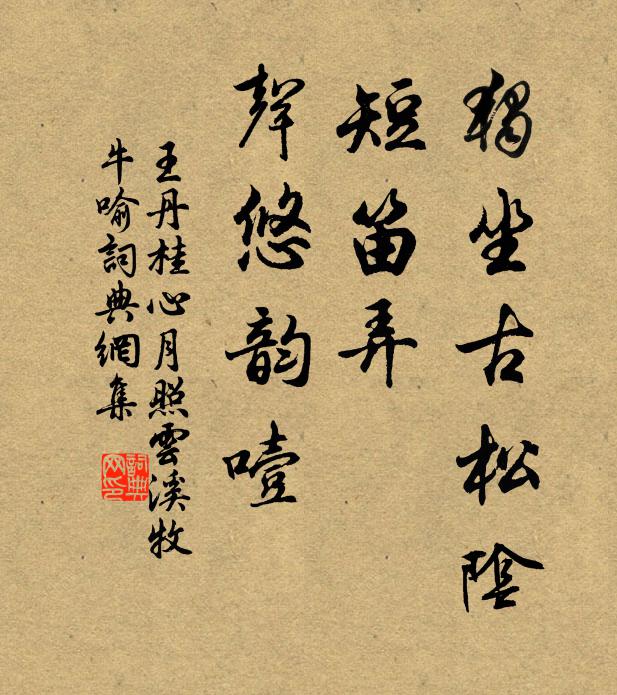 獨坐古松陰
短笛弄
聲悠韵噎
王丹桂心月照雲溪牧
牛喻詞典網集
詞典网印